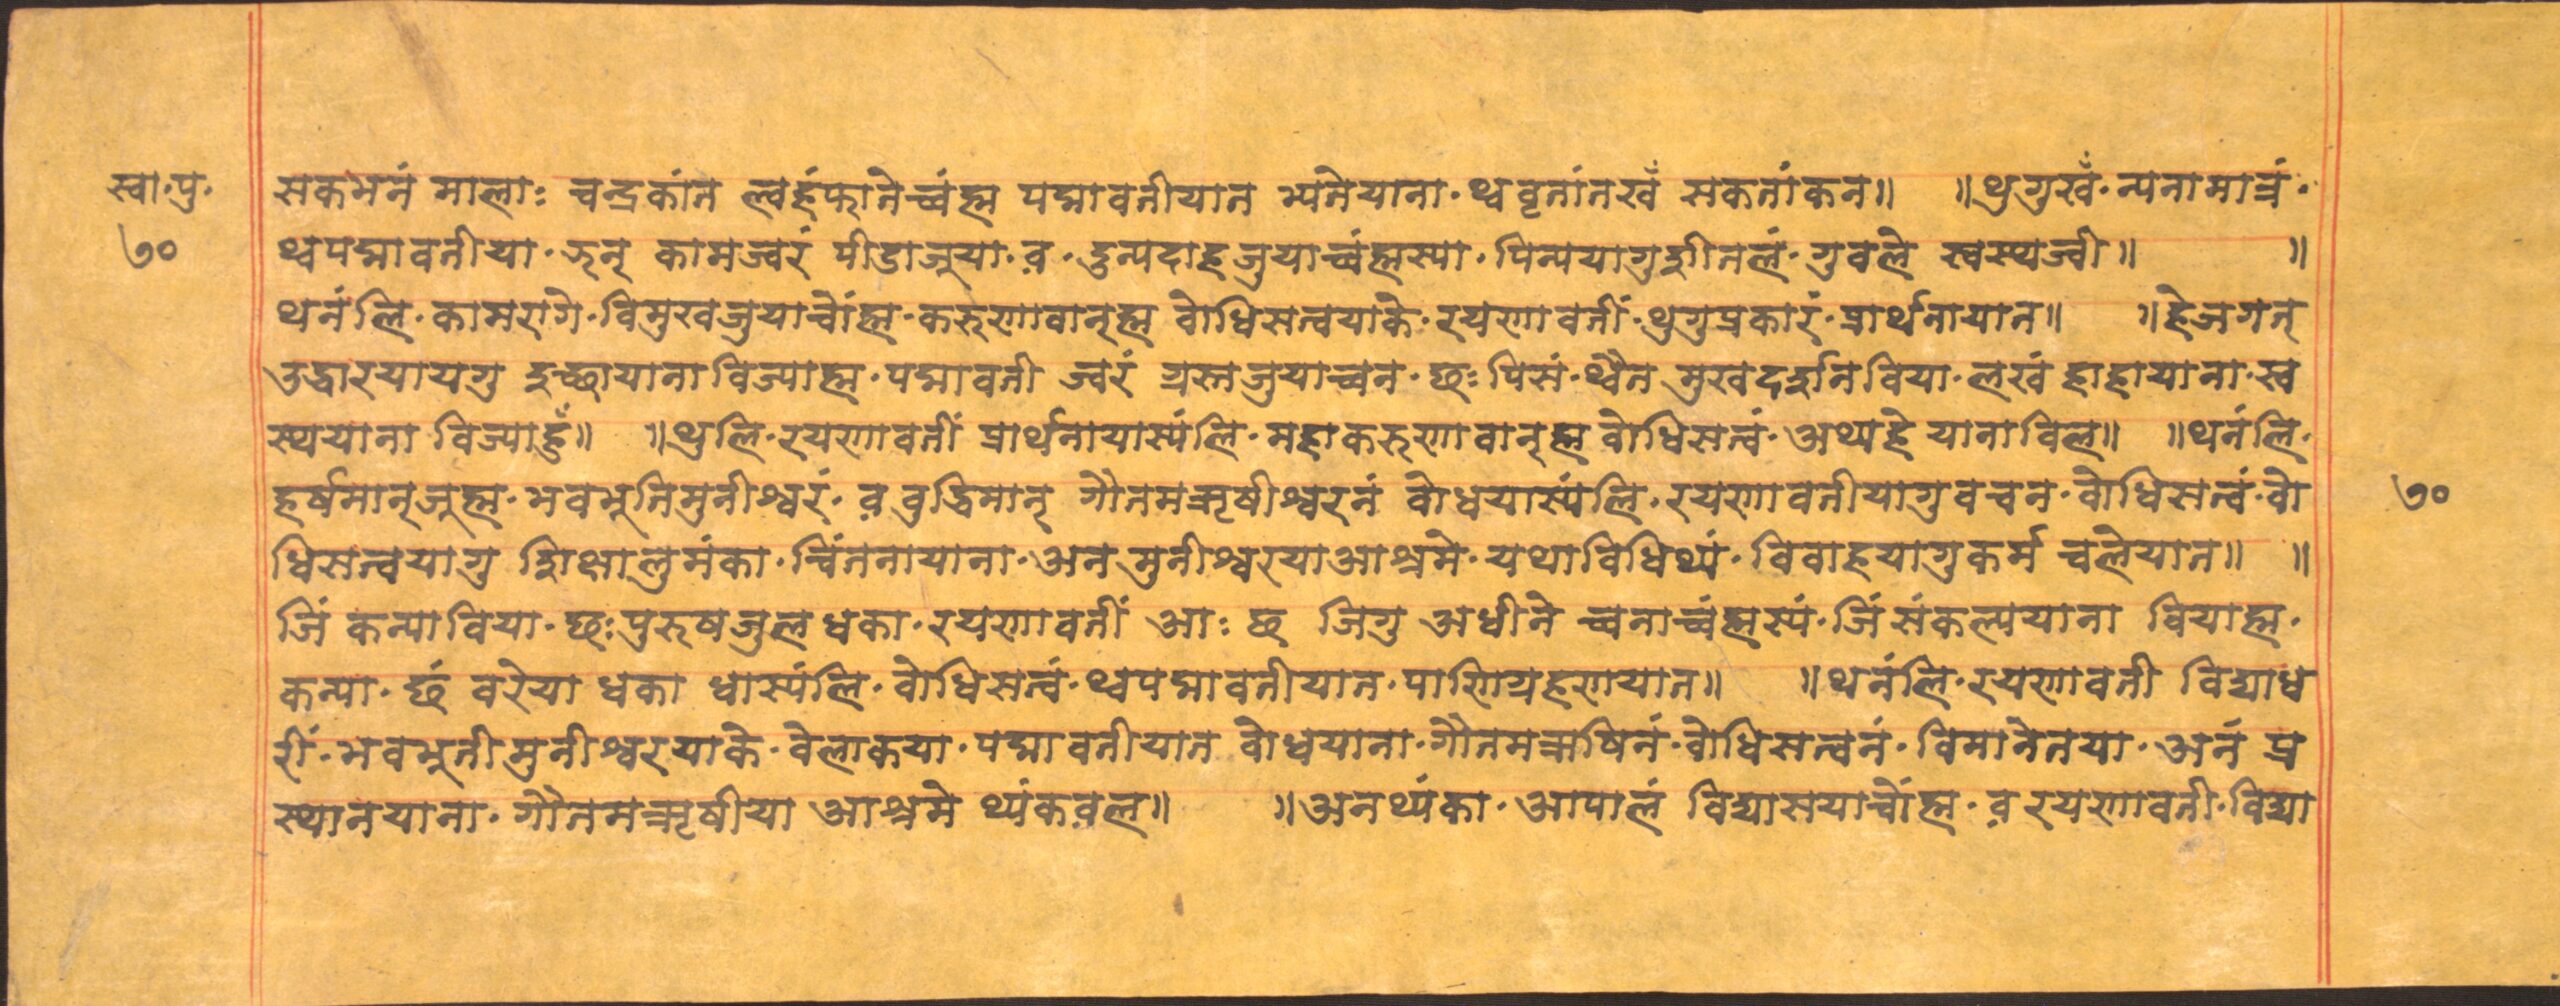 स्वा॰पु॰
७०
सकभनं मालाः चन्द्रकांत ल्वहंफातेच्वंह्म पद्मावतीयात भ्यतेयाना॰ थ्ववृतांतखँ सकतांकन॥ ॥थुगुखँ॰ न्यनामात्रं॰
थ्वपद्मावतीया॰ ऋन् कामज्वरं पीडाजुया॰ व॰ दुन्यदाहजुयाच्वंह्मस्या॰ पिन्ययागुशीतलं॰ गुवले स्वस्थज्वी॥ ॥
थनंलि॰ कामरागे॰ विमुखजुयाचोंह्म॰ करुणावान्ह्म बोधिसत्वयाके॰ रयणावतीं॰ थुगुप्रकारं॰ प्रार्थनायात॥ ॥हेजगत्
उद्धारयायगु इच्छायानाविज्याह्म॰ पद्मावती ज्वरं ग्रस्तजुयाच्वन॰ छः पिसं॰ थ्वैत मुखदर्शनविया॰ लखं हाहायाना॰ स्व
स्थयाना विज्याहुँ॥ ॥थुलि॰ रयणावतीं प्रार्थनायास्यंलि॰ महाकरुणावान्ह्म बोधिसत्वं॰ अथ्यहे यानाविल॥ ॥थनंलि॰
हर्षमान्जुह्म॰ भवभूतिमुनीश्वरं॰ व बुद्धिमान् गौतमऋषीश्वरनं बोधयास्यंलि॰ रयणावतीयागुवचन॰ बोधिसत्वं॰ बो
७०
धिसत्वयागु शिक्षालुमंका॰ चिंतनायाना॰ अन मुनीश्वरयाआश्रमे॰ यथाविधिथ्यं॰ विवाहयागुकर्म चलेयात॥ ॥
जिं कन्याविया॰ छःपुरुषजुल धका॰ रयणावतीं आः छ जिगु अधीने च्वनाच्वंह्मस्यं॰ जिं संकल्पयाना वियाह्म॰
कन्या॰ छं वरेया धका धास्यंलि॰ बोधिसत्वं॰ थ्वपद्मावतीयात॰ पाणिग्रहणयात॥ ॥थनंलि॰ रयणावती विद्याध
रीं॰ भवभूतीमुनीश्वरयाके॰ वेलाकया॰ पद्मावतीयात बोधयाना॰ गौतमऋषिनं॰ बोधिसत्वनं॰ विमानेतया॰ अनं प्र
स्थानयाना॰ गौतमऋषीया आश्रमे थ्यंकवल॥ ॥अनथ्यंका॰ आपालं विद्यासयाचोंह्म॰ व रयणावती॰ विद्या